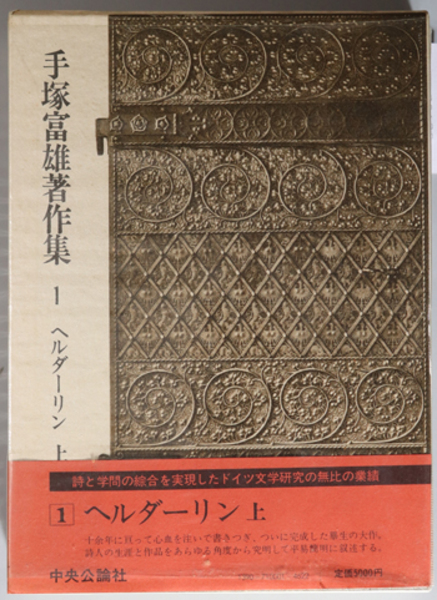 手塚富雄著作集
1
ヘルダーリン 上
詩と学問の綜合を実現したドイツ文学研究の無比の業績
1 ヘルダーリン 上
十余年に亘って心血を注いで書きつぎ、ついに完成した畢生の大作。
詩人の生涯と作品をあらゆる角度から究明して平易簡明に叙述する。
中央公論社
定価5000円